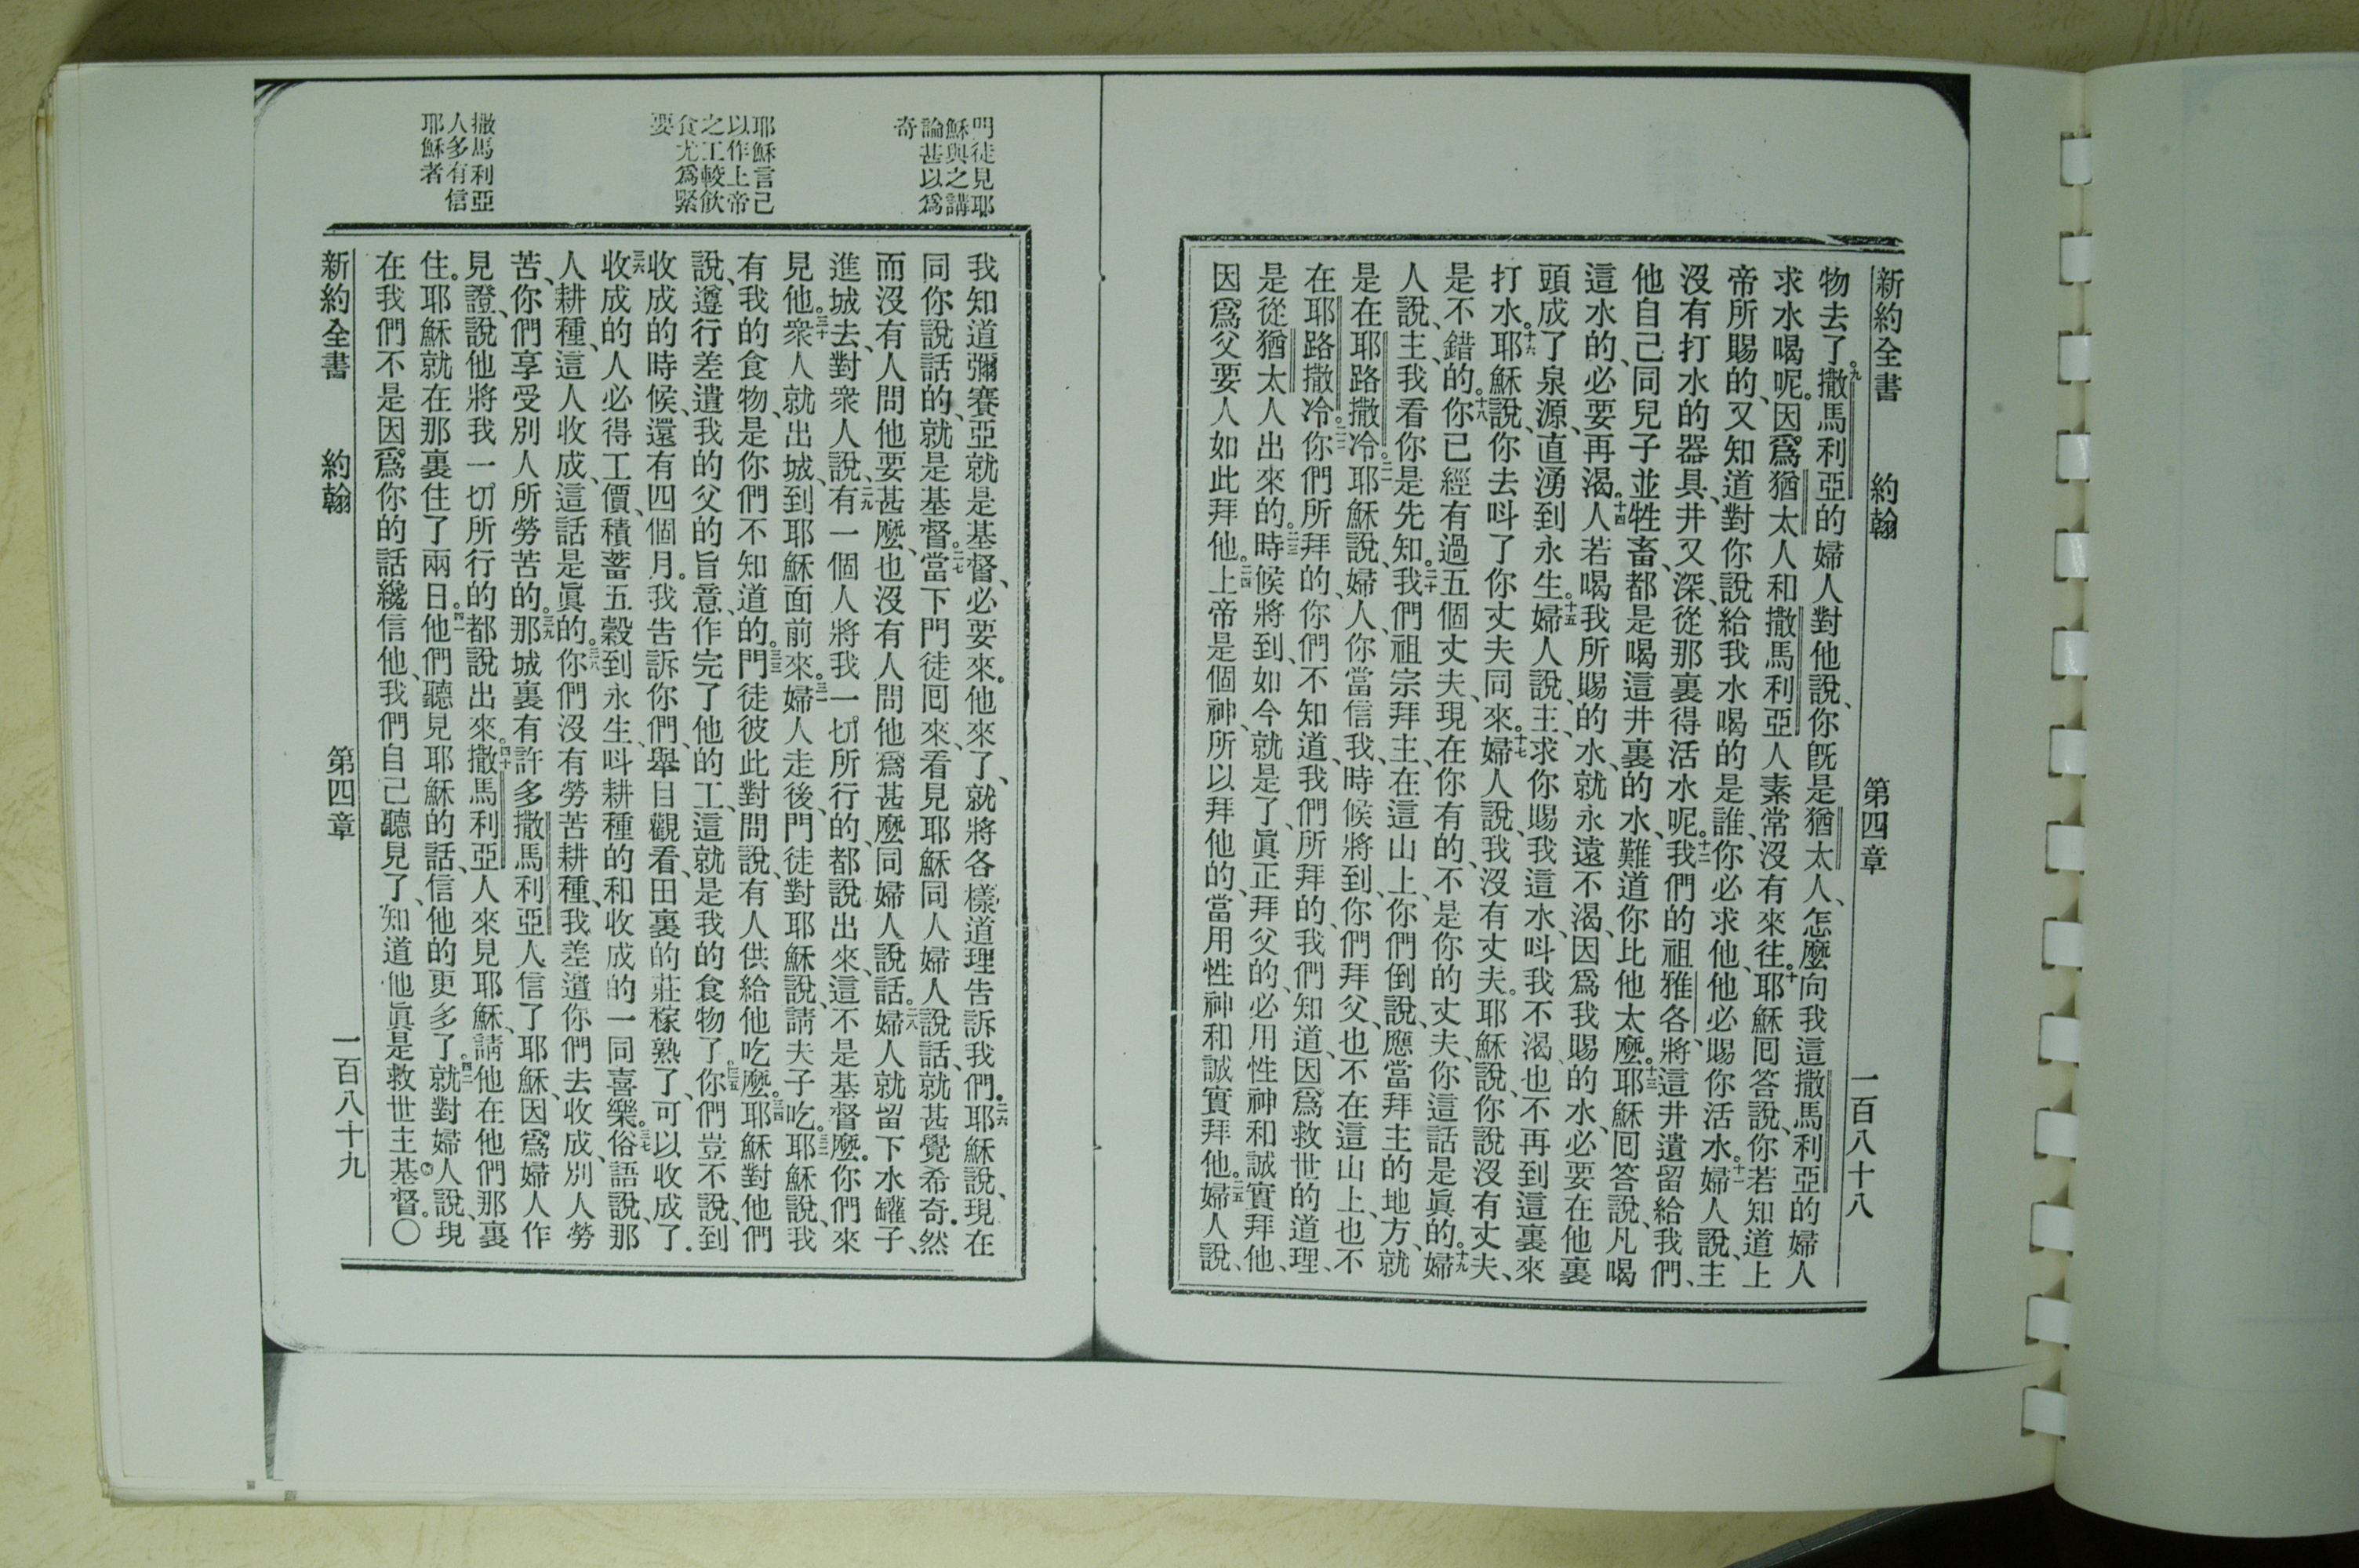 新約全書 約翰 第四章 一百八十八
物去了。九撒馬利亞的婦人對他說、你旣是猶太人、怎麼向我這撒馬利亞的婦人
求水喝呢。因爲猶太人和撒馬利亞人素常沒有來往。十耶穌囘答說、你若知道上
帝所賜的、又知道對你說給我水喝的是誰、你必求他、他必賜你活水。十一婦人說、主
沒有打水的器具、井又深、從那裏得活水呢。十二我們的祖雅各、將這井遺留給我們、
他自己、同兒子並牲畜、都是喝這井裏的水、難道你比他太麼。十三耶穌囘答說、凡喝
這水的、必要再渴。十四人若喝我所賜的水、就永遠不渴、因爲我賜的水、必要在他裏
頭成了泉源、直湧到永生。十五婦人說、主、求你賜我這水、呌我不渴、也不再到這裏來
打水。十六耶穌說、你去呌了你丈夫同來。十七婦人說、我沒有丈夫。耶穌說、你說沒有丈夫、
是不錯的。十八你已經有過五個丈夫、現在你有的、不是你的丈夫、你這話是眞的。十九婦
人說、主、我看你是先知。二十我們祖宗拜主、在這山上、你們倒說、應當拜主的地方、就
是在耶路撒冷。二一耶穌說、婦人、你當信我、時候將到、你們拜父、也不在這山上、也不
在耶路撒冷。二二你們所拜的、你們不知道、我們所拜的、我們知道、因爲救世的道理、
是從猶太人出來的。二三時候將到、如今就是了、眞正拜父的、必用性神和誠實拜他、
因爲父要人如此拜他。二四上帝是個神、所以拜他的、當用性神和誠實拜他。二五婦人說、
明徒見耶
穌與之講
論甚以爲
奇
耶穌言己
以作上帝
之工較飲
食尤爲緊
要
撒馬利亞
人多有信
耶穌者
我知道彌賽亞就是基督、必要來。他來了、就將各樣道理告訴我們。二六耶穌說、現在
同你說話的、就是基督。二七當下門徒囘來、看見耶穌同人婦人說話、就甚覺希奇。然
而沒有人問他要甚麼、也沒有人問他爲甚麼同婦人說話。二八婦人就留下水罐子、
進城去、對衆人說、二九有一個人將我一切所行的、都說出來、這不是基督麼。你們來
見他。三十衆人就出城、到耶穌面前來。三一婦人走後、門徒對耶穌說、請夫子吃。三二耶穌說、我
有我的食物、是你們不知道的。三三門徒彼此對問說、有人供給他吃麼。三四耶穌對他們
說、遵行差遣我的父的旨意、作完了他的工、這就是我的食物了。三五你們豈不說、到
收成的時候、還有四個月。我告訴你們、舉目觀看、田裏的莊稼熟了、可以收成了。
三六收成的人必得工價、積蓄五穀到永生、呌耕種的和收成的一同喜樂。三七俗語說、那
人耕種、這人收成、這話是眞的。三八你們沒有勞苦耕種、我差遣你們去收成、別人勞
苦、你們享受別人所勞苦的。三九那城裏有許多撒馬利亞人信了耶穌、因爲婦人作
見證、說他將我一切所行的都說出來。四十撒馬利亞人來見耶穌、請他在他們那裏
住。耶穌就在那裏住了兩日。四一他們聽見耶穌的話、信他的更多了。四二就對婦人說、現
在我們不是因爲你的話纔信他、我們自己聽見了、知道他眞是救世主基督。〇
新約全書 約翰 第四章 一百八十九